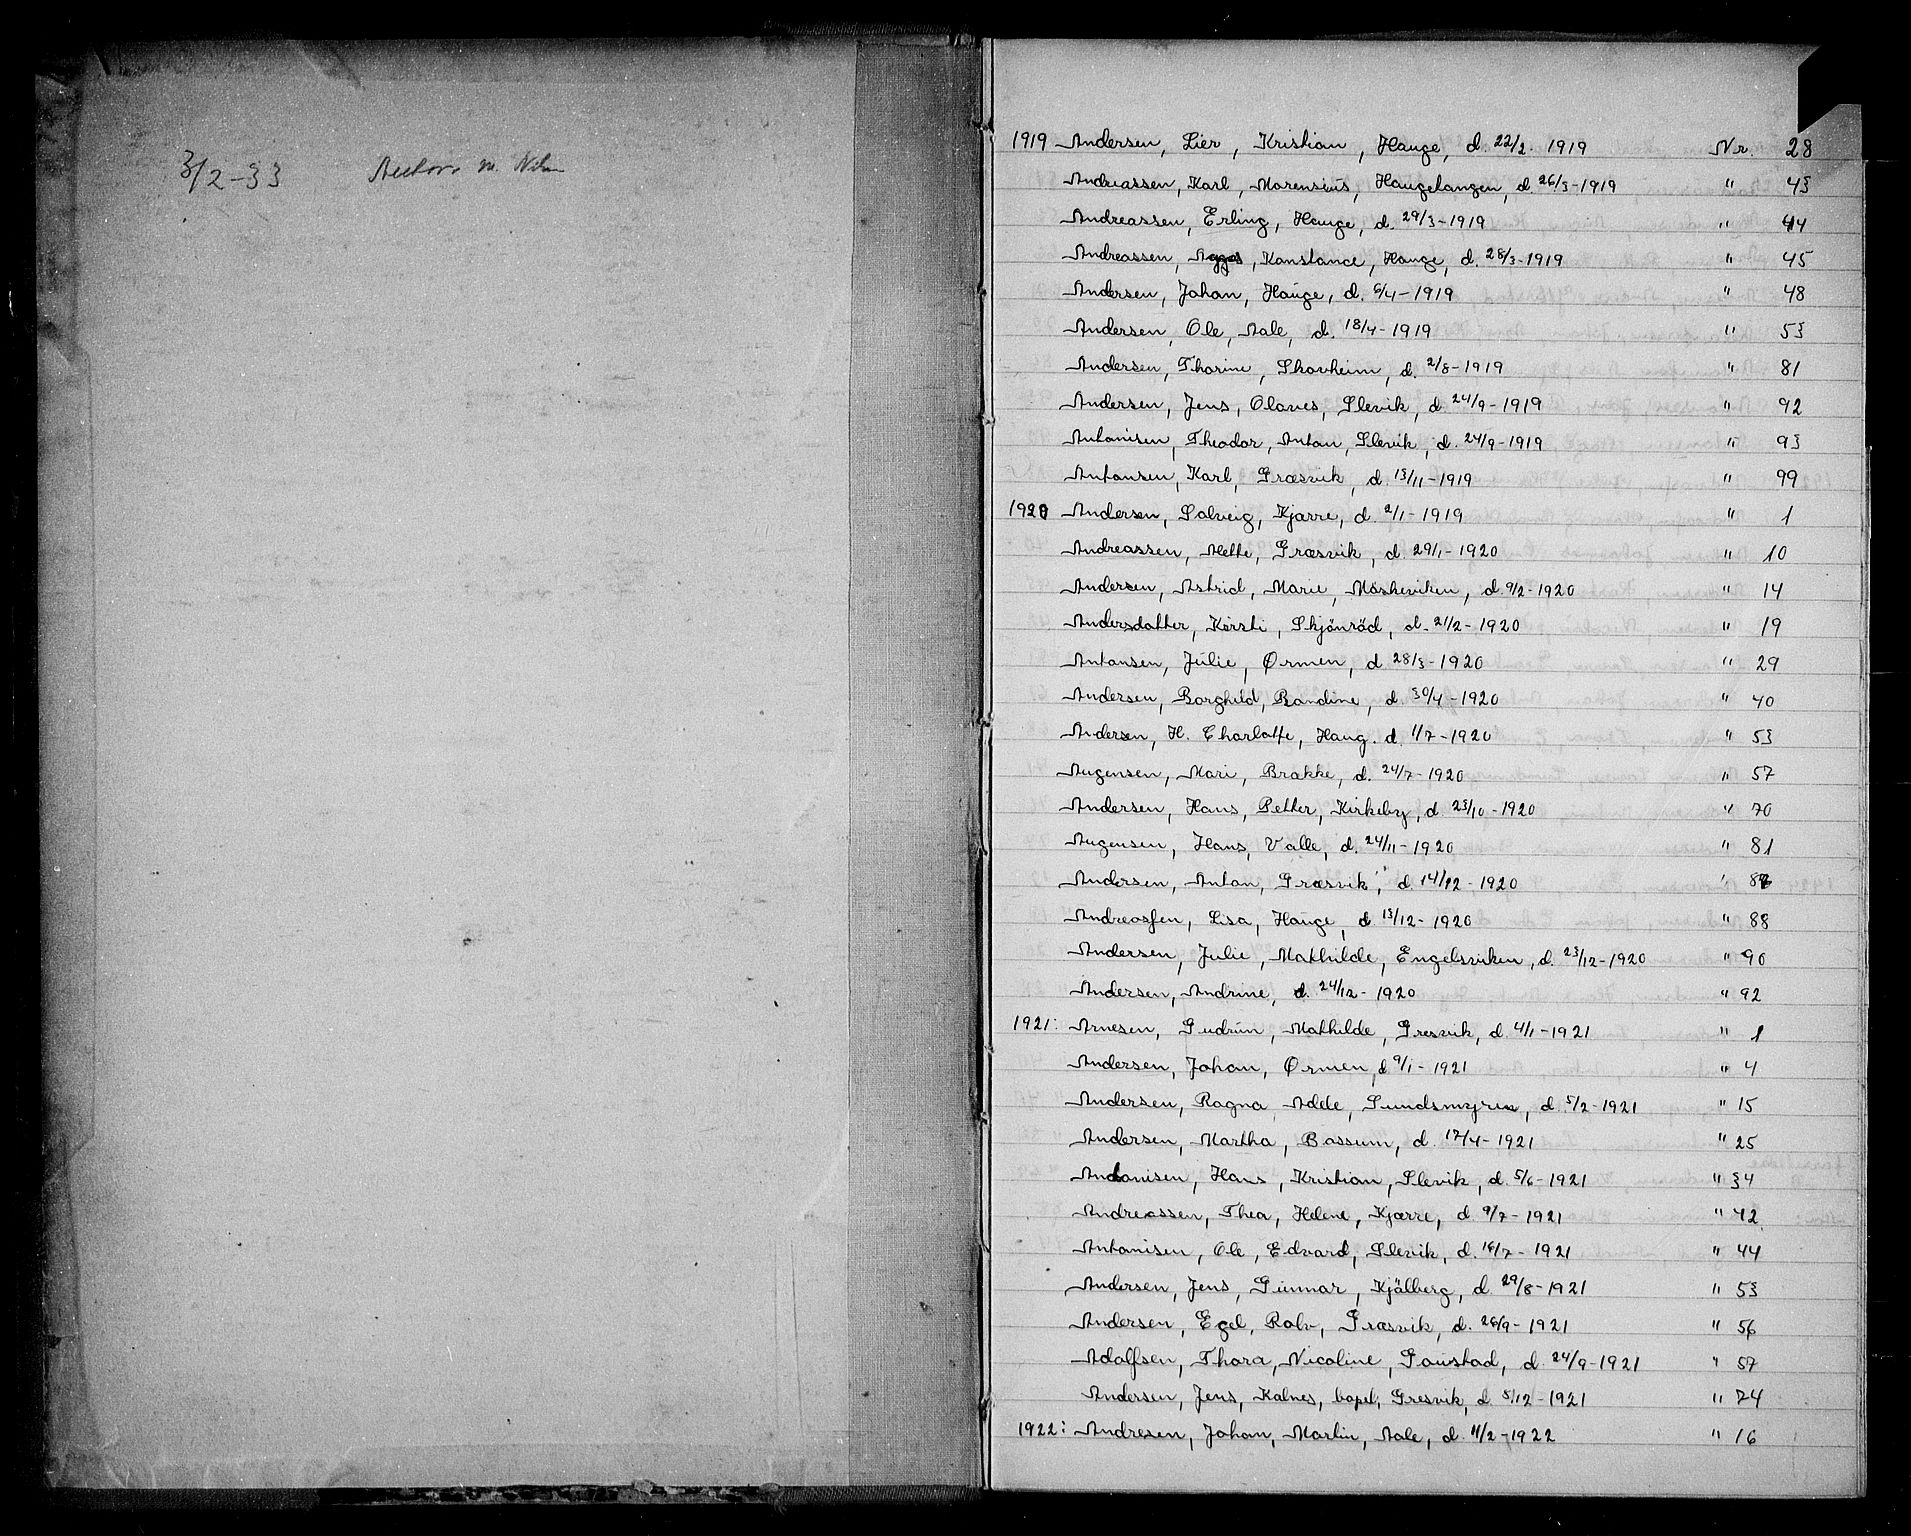 3/2-33
1919 Andersen, Lier, Kristian, Hauge, d. 22/2. 1919 Nr. 28
Andreassen, Karl, Marensius, Haugetangen, d. 26/3-1919 " 43
Andreassen, Erling, Hauge, d. 29/3-1919 " 44
Andreassen, Konstance, Hauge, d. 28/3-1919 " 45
Andersen, Johan, Hauge, d. 6/4-1919 " 48
Andersen, Ole, Aale, d. 18/4-1919 " 53
Andersen, Thorine, Skovheim, d. 2/8-1919 " 81
Andersen, Jens, Olaves, Slevik, d. 24/9-1919 " 92
Antonisen, Theodor, Anton, Slevik, d. 24/9-1919 " 93
Antonsen, Karl, Græsvik, d. 13/11-1919 " 99
1920 Andersen, Solveig, Kjærre, d. 2/1-1919 " 1
Andreassen, Mette, Græsvik, d. 29/1-1920 " 10
Andersen, Astrid, Marie, Möskeviken, d. 9/2-1920 " 14
Andersdatter, Kirsti, Skjönröd, d. 21/2-1920 " 19
Antonsen, Julie, Ørmen, d 28/3-1920 " 29
Andersen, Borghild, Randine, d. 30/4-1920 " 40
Andersen, H. Charlotte, Haug. d. 1/7-1920 " 53
Augensen, Mari, Brakke, d. 24/7-1920 " 57
Andersen, Hans, Petter, Kirkeby, d. 23/10-1920 " 70
Augensen, Hans, Valle, d. 24/11-1920 " 81
Andersen, Anton, Græsvik, d 14/12-1920 "
Andreassen, Lisa, Hauge, d 13/12-1920 " 88
Andersen, Julie, Mathilde, Engelsviken, d. 23/12-1920 " 90
Andersen, Andrine, d. 24/12-1920 " 92
1921: Arnesen, Gudrun, Mathilde, Gresvik, d. 4/1-1921 " 1
Andersen, Johan, Ørmen, d 9/1-1921 " 4
Andersen, Ragna Adele, Sundsmyren, d. 5/2-1921 " 15
Andersen, Martha, Bossum, d. 17/4-1921 " 25
Antonisen, Hans, Kristian, Slevik, d. 5/6-1921 " 34
Andreassen, Thea, Helene, Kjærre, d. 9/7-1921 " 42
Antonisen, Ole, Edvard, Slevik, d. 16/7-1921 " 44
Andersen, Jens, Gunnar, Kjölberg, d. 29/8-1921 " 53
Andersen, Egel, Rolv, Græsvik, d. 26/9-1921 " 56
Adolfsen, Thora, Nicoline, Gaustad, d. 24/9-1921 " 57
Andersen, Jens, Kalnes, bopel, Gresvik, d. 5/12-1921 " 74
1922: Andresen, Johan, Martin, Aale, d. 11/2-1922 " 16